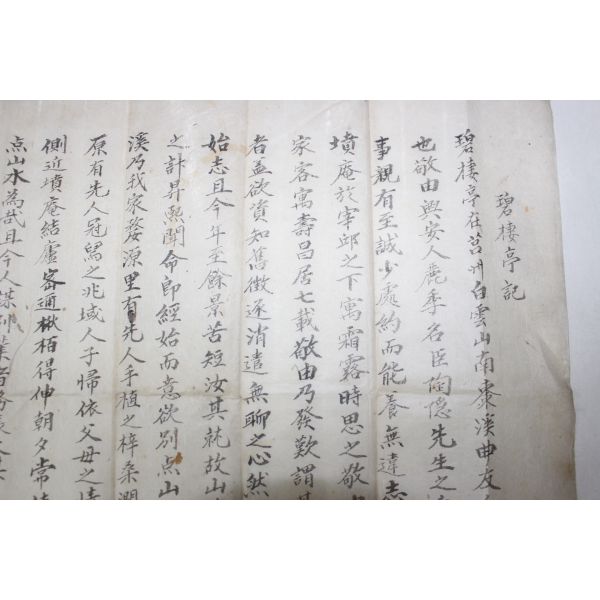 碧棲亭記
碧棲亭在莒州白雲山南棗溪曲友
也敬由興安人麗季名臣陶隱先生之
事親有至誠少處約而能養無違志
墳庵於宰邱之下寓霜露時思之敬
家客寓壽昌居七載敬由乃發歎謂
者並欲資知舊徵逐消遣無聊之心然
始志且今年至餘景苦短汝其毓故山
之計昇熙聞命即經始而意欲別点山
溪乃我家婺源里有先人手植之梓桑
原有先人冠舃之兆域人子帰依父母之情
側近墳庵結廬密通楸栢得伸朝夕常
点山水為哉且今人謀